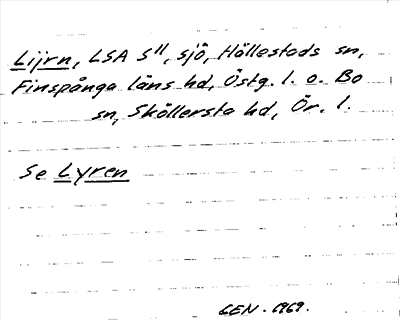 Lijrn, LSA S11, sjö, Hällestads sn,
Finspånga läns hd, Östg. l. o. Bo
sn, Sköllersta hd, Ör. l.
Se Lyren
CEN. 1969.